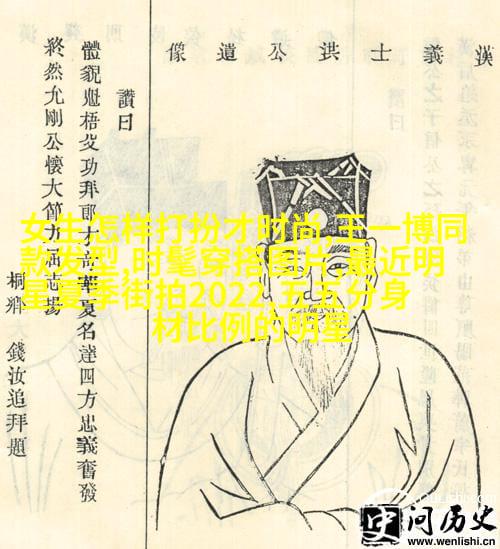 漢義士洪公遺像
讚曰
體貌魁梧文功拜郎才高華夏名達四方忠義奮發
終然允剛公懷大節九屈志揚
桐鄉 錢汝追拜題
女生怎样打扮才时尚,王一博同
款发型,时髦穿搭图片,最近明
星夏季街拍2022,五五分身
材比例的明星
问历史
www.wenlishi.cn